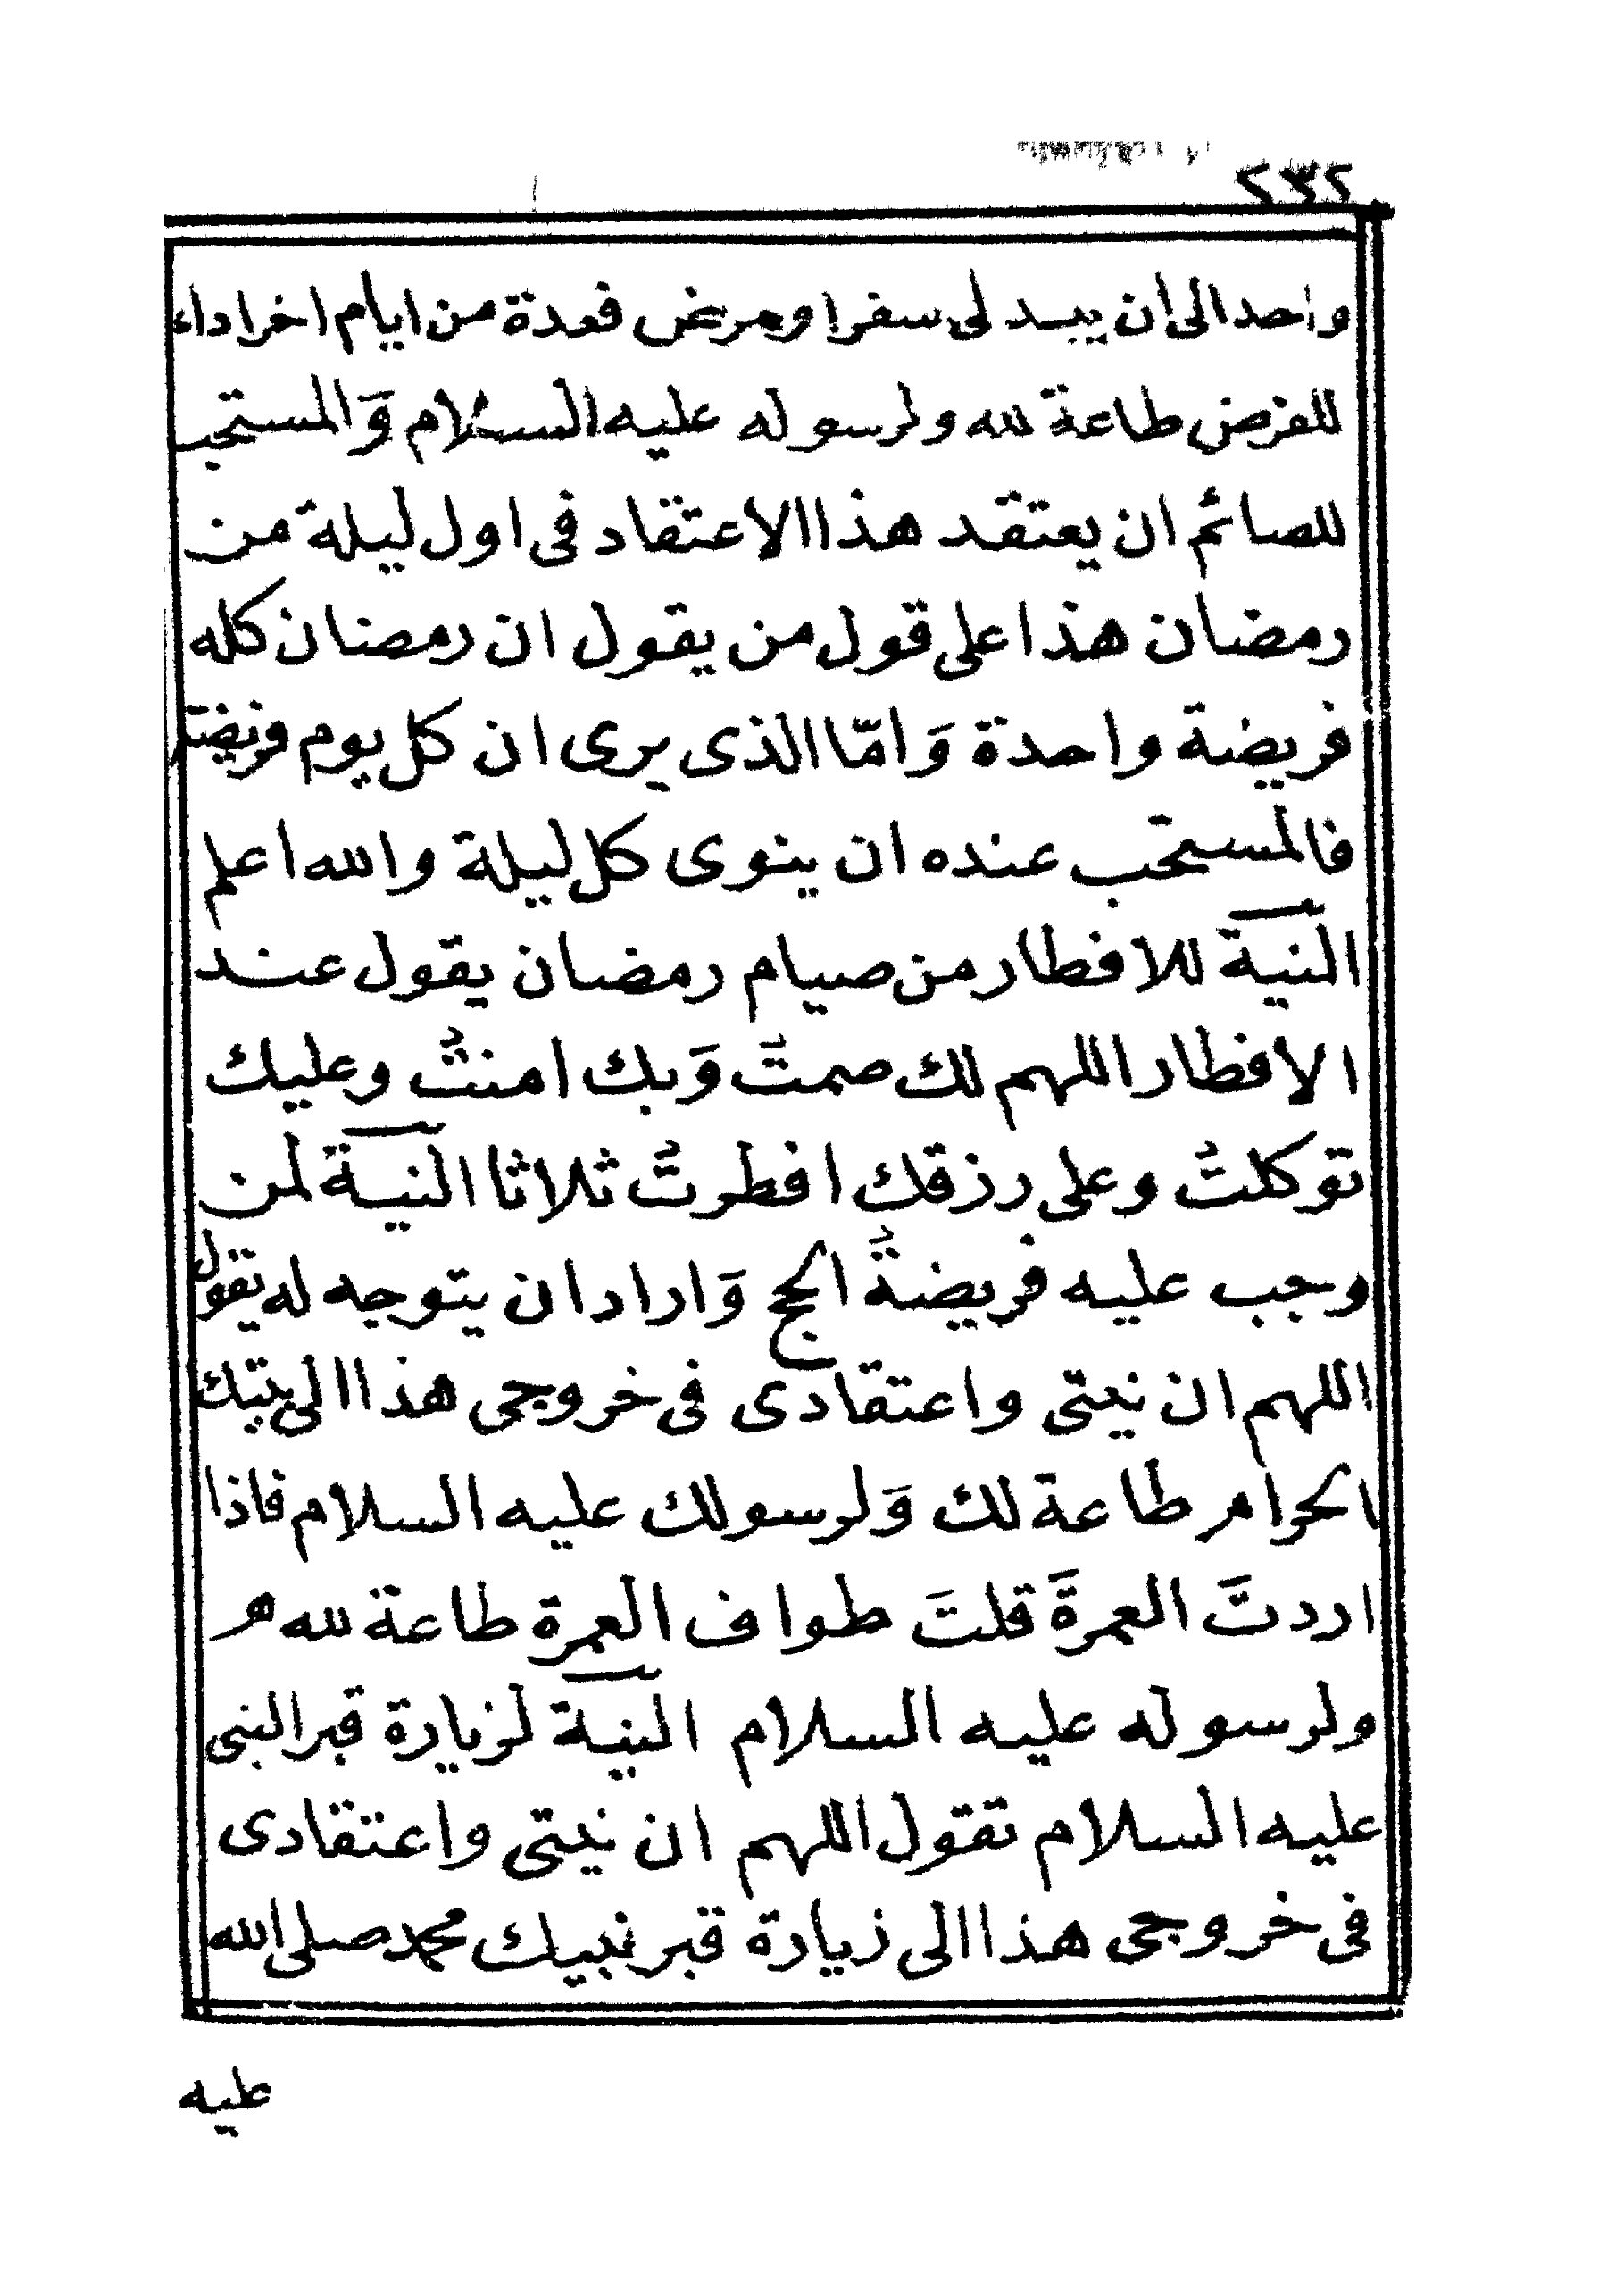 ٢٣٢
واحد الى ان يبد لى سفر او مرض فعدة من ايام اخر اداء
للفرض طاعة لله ولرسوله عليه السلام وَالمستحب
للصائم ان يعتقد هذا الاعتقاد فى اول ليلة من
رمضان هذا على قول من يقول ان رمضان كله
فريضة واحدة وَامّا الذى يرى ان كل يوم فريضة
فالمستحب عنده ان ينوى كل ليلة والله اعلم
النية للافطار من صيام رمضان يقول عند
الافطار اللهم لك صمتُ وَبك امنتُ وعليك
توكلتُ وعلى رزقك افطرتُ ثلاثا النية لمن
وجب عليه فريضةُ الحج وَاراد ان يتوجه له يقول
اللهم ان نيتى واعتقادى فى خروجى هذا الى بيتك
الحرام طاعة لك وَلرسولك عليه السلام فاذا
اردتَ العمرةَ قلتَ طواف العمرة طاعة لله
ولرسوله عليه السلام النية لزيارة قبر النبى
عليه السلام تقول اللهم ان نيتى واعتقادى
فى خروجى هذا الى زيارة قبر نبيك محمد صلى الله
عليه